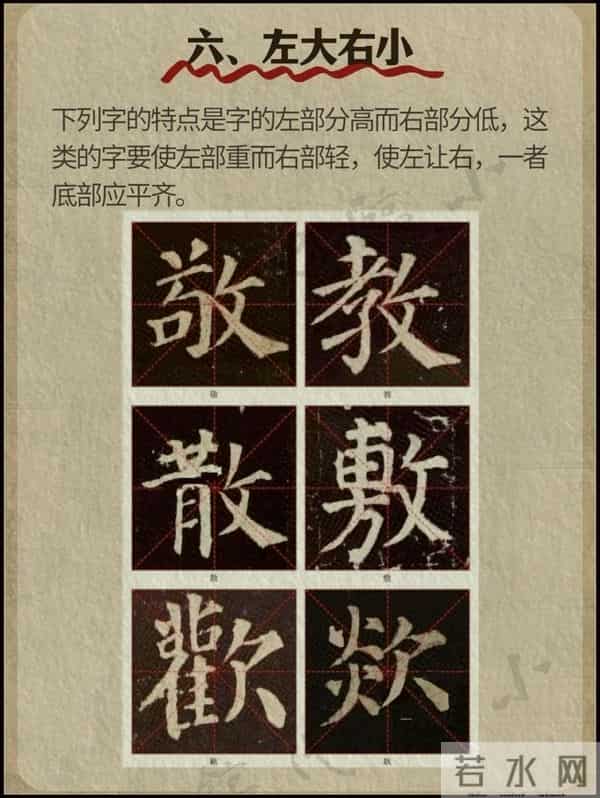 六、左大右小
下列字的特点是字的左部分高而右部分低，这
类的字要使左部重而右部轻，使左让右，一者
底部应平齐。
敬 教
敬 教
散 敷
散 敷
歡 欻
若水网